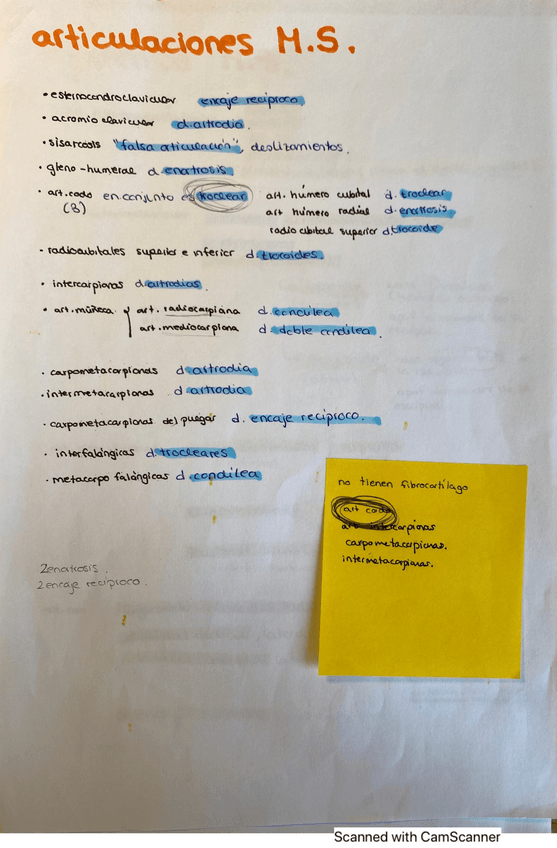 articulaciones M.S.
• esternocondroclavicular encaje reciproco
• acromio clavicular d. artrodia.
• sisarcosis "falsa articulación", deslizamientos.
• gleno-humeral d. enatrosis.
• art. codo en conjunto es troclear art. húmero cubital d. troclear
(3) art húmero radial d. enatrosis
radio cubital superior d. trocoide
• radiocubitales superior e inferior d. trocoides.
• intercarpianas d. artrodias.
• art. muñeca art. radiocarpiana d. condílea
art. mediocarpiana d. doble condílea.
• carpometacarpianas d artrodia
• intermetacarpianas d artrodia
• carpometacarpianas del pulgar d. encaje reciproco.
• interfalángicas d. trocleares
• metacarpo falángicas d condílea
no tienen fibrocartílago
art codo
art intercarpianas
carpometacarpianas.
intermetacarpianas.
2enatrosis.
2encaje reciproco.
Scanned with CamScanner